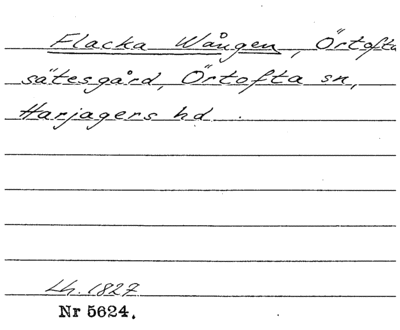 Flacka Wången, Örtofta
sätesgård, Örtofta sn,
Harjagers hd.
Lh. 1827
Nr 5624.